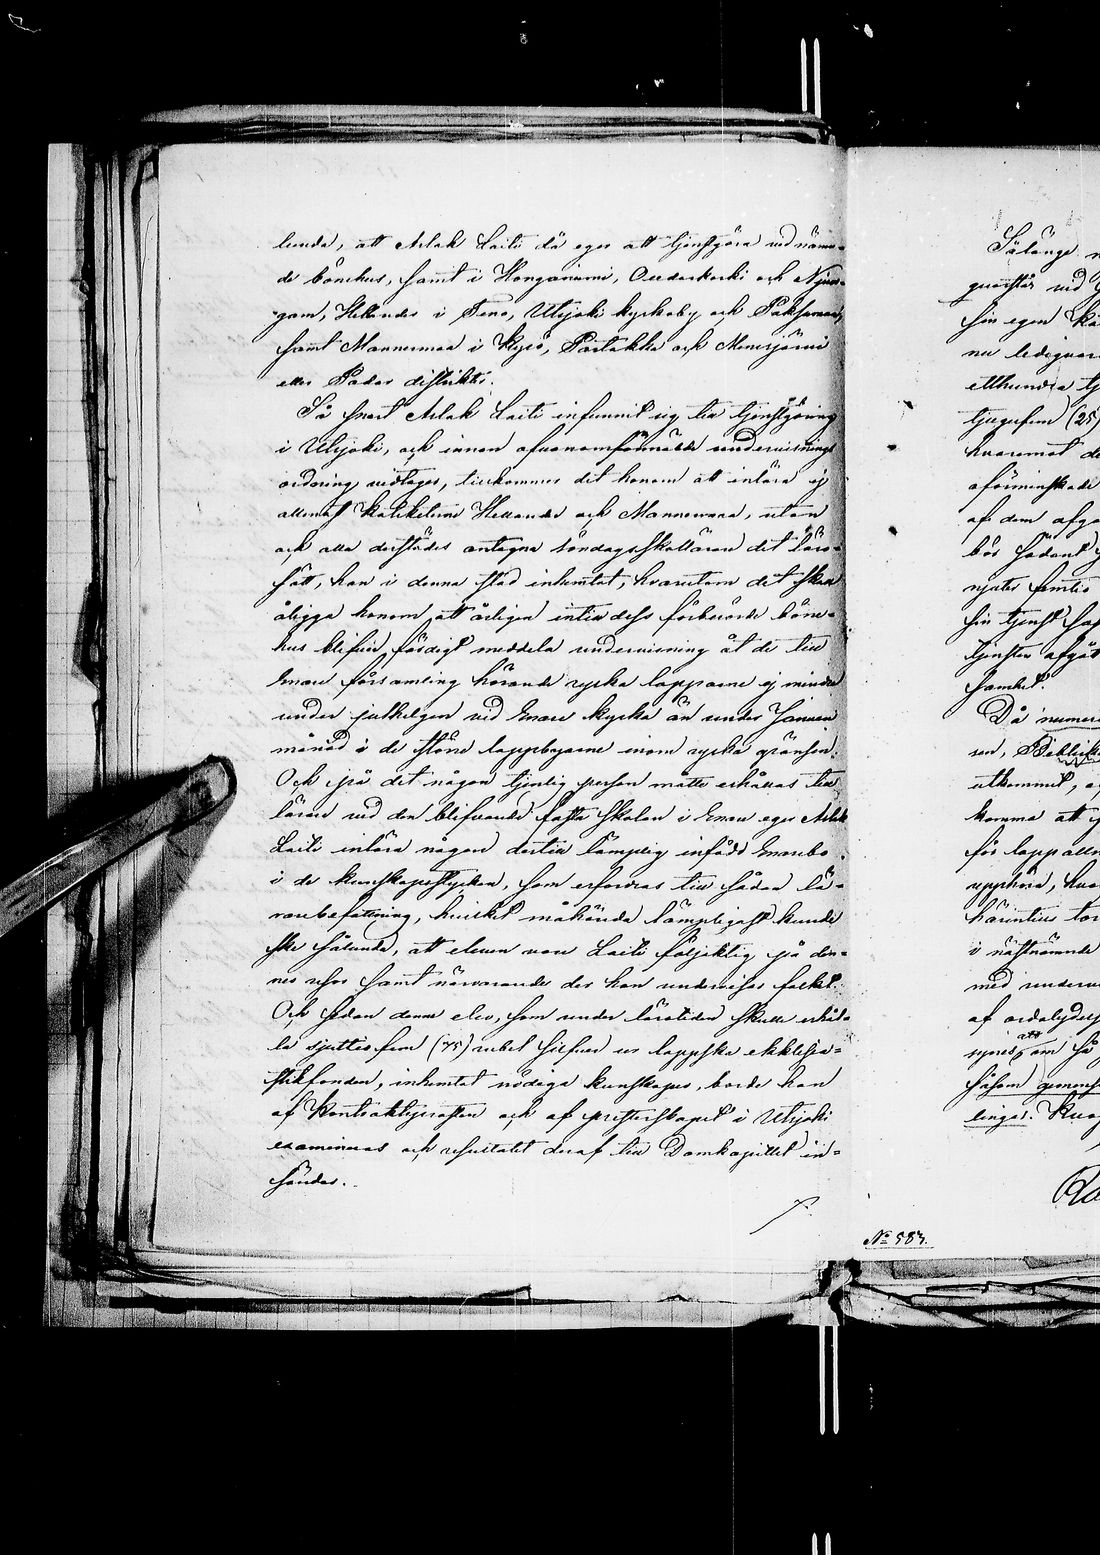 lunda, att Aslak Laiti då eger att tjenstgöra vid nämn-
de bönehus, samt i Honganiemi, Outakoski och Njuor-
gam, Hellander i Teno, Utsjoki kyrkoby och Paksuma,
samt Mannermaa i Kyrö, Partakka och Menesjärvi
eller Padar distrikter.
Så snart Aslak Laiti infunnit sig till tjenstgöring
i Utsjoki, och innan ofvanomförmälde undervisnings
ordning vidtages, tillkommer det honom att inlära ej
allenast Kateketerne Hellander och Mannermaa, utan
och alla derstädes antagne söndagsskollärare det läro-
sätt, han i denna stad inhemtat, hvarutom det skall
åligga honom att årligen intill dess förberörde böne-
hus blifvit färdigt meddela undervisning åt de till
Enare församling hörande ryska lapparne ej mindre
under julhelgen vid Enare kyrka än under Januari
månad i de större lappbyarne inom ryska gränsen.
Och på det någon tjenlig person måtte erhållas till
lärare vid den blifvande fasta skolan i Enare eger Aslak
Laiti inlära någon dertill lämplig infödd Enarebo
i de kunskapsstycken, som erfordras till sådan lä-
rarebefattning, hvilket måhända lämpligast kunde
ske sålunda, att eleven vore Laiti följaktig på den-
nes resor samt närvarande der han undervisar folket.
Och sedan denne elev, som under lärotiden skulle erhål-
la sjuttiofem (75) rubel silfver ur lappska ecklesia-
stikfonden, inhemtat nödiga kunskaper, borde han
af Kontraktsprosten och af presterskapet i Utsjoki
examineras och resultatet deraf till Domkapitlet in-
sändas.
Sålänge
vid
sin egen
etthundra
tjugufem (25)
hvaremot
oförminskade
af dem
bör sådant
njuter
sin tjenst
tjensten
samhet.
Då numera
utkommit,
komma att
för
upphöra,
härintill
i
med
af
att
synes om så
såsom
lingar.
No 583.